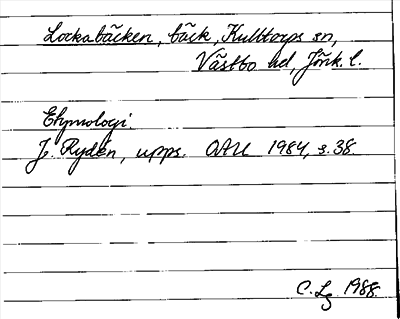 Lockabäcken, bäck, Kulltorps sn,
Västbo hd, Jönk. l.
Etymologi.
J. Rydén, upps. OAU 1984, s. 38.
C. Lg 1988.